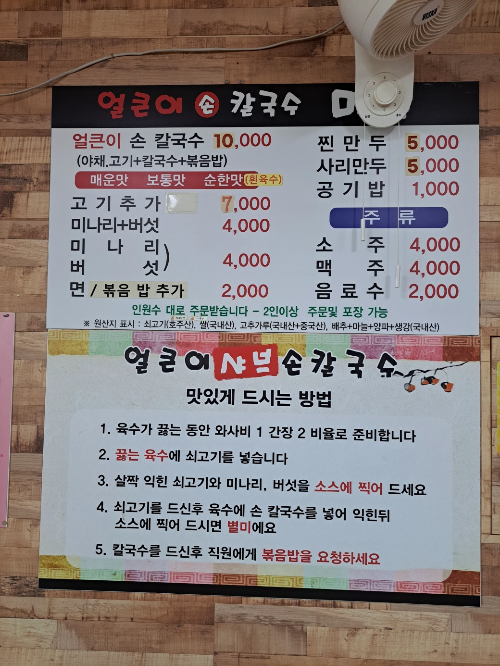 얼큰이 손 칼국수
얼큰이 손 칼국수 10,000
(야채,고기+칼국수+볶음밥)
매운맛 보통맛 순한맛(흰육수)
고기추가 7,000
미나리+버섯 4,000
미나리
버섯 ) 4,000
면 / 볶음 밥 추가 2,000
찐만두 5,000
사리만두 5,000
공기밥 1,000
주류
소주 4,000
맥주 4,000
음료수 2,000
인원수 대로 주문받습니다 - 2인이상 주문및 포장 가능
※ 원산지 표시 : 쇠고기(호주산), 쌀(국내산), 고추가루(국내산+중국산), 배추+마늘+양파+생강(국내산)
얼큰이 샤브 손칼국수
맛있게 드시는 방법
1. 육수가 끓는 동안 와사비 1 간장 2 비율로 준비합니다
2. 끓는 육수에 쇠고기를 넣습니다
3. 살짝 익힌 쇠고기와 미나리, 버섯을 소스에 찍어 드세요
4. 쇠고기를 드신후 육수에 손 칼국수를 넣어 익힌뒤
소스에 찍어 드시면 별미에요
5. 칼국수를 드신후 직원에게 볶음밥을 요청하세요